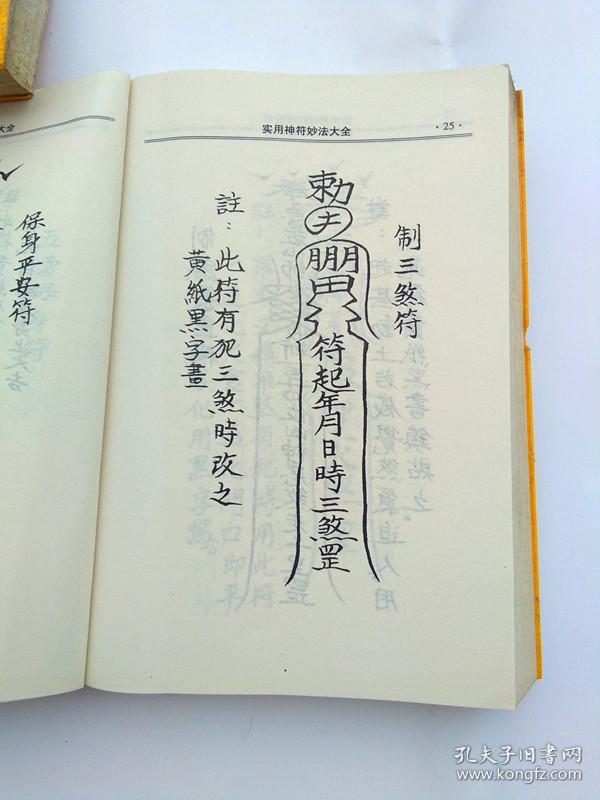 大全
保身平安符
实用神符妙法大全
·25·
制三煞符
勅
朋
田
符起年月日時三煞罡
註：此符有犯三煞時改之
黃紙黑字畫
孔夫子旧书网
www.kongfz.com